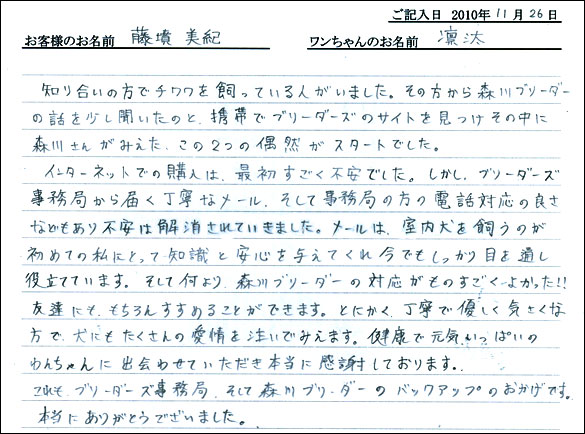 ご記入日 2010年11月26日
お客様のお名前 藤墳 美紀 ワンちゃんのお名前 凛汰
知り合いの方でチワワを飼っている人がいました。その方から森川ブリーダー
の話を少し聞いたのと、携帯でブリーダーズのサイトを見つけその中に
森川さんがみえた、この2つの偶然がスタートでした。
インターネットでの購入は、最初すごく不安でした。しかし、ブリーダーズ
事務局から届く丁寧なメール、そして事務局の方の電話対応の良さ
などもあり不安は解消されていきました。メールは、室内犬を飼うのが
初めての私にとって知識と安心を与えてくれ今でもしっかり目を通し
役立てています。そして何より、森川ブリーダーの対応がものすごくよかった!!
友達にも、もちろんすすめることができます。とにかく、丁寧で優しく気さくな
方で、犬にもたくさんの愛情を注いでみえます。健康で元気いっぱいの
わんちゃんに出会わせていただき本当に感謝しております。
これも、ブリーダーズ事務局、そして森川ブリーダーのバックアップのおかげです。
本当にありがとうございました。